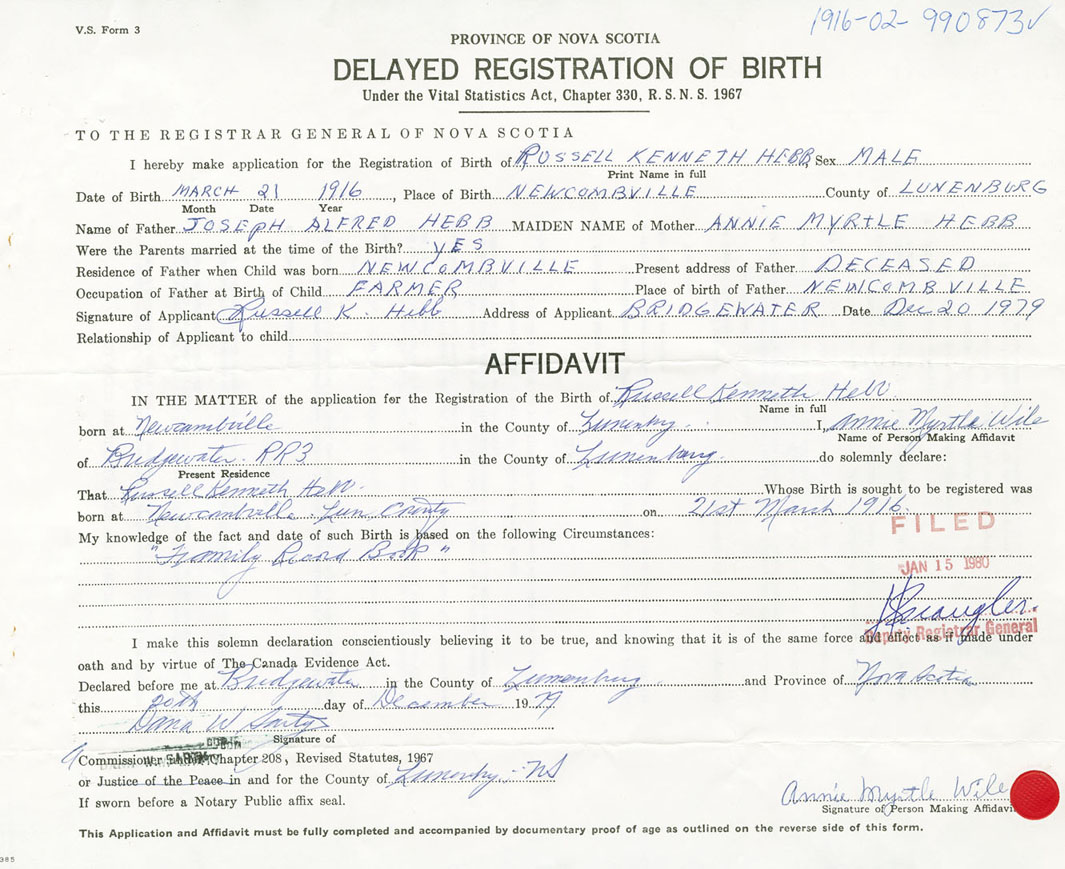 V.S. Form 3
1916-02-990873✓
PROVINCE OF NOVA SCOTIA
DELAYED REGISTRATION OF BIRTH
Under the Vital Statistics Act, Chapter 330, R. S. N. S. 1967
TO THE REGISTRAR GENERAL OF NOVA SCOTIA
I hereby make application for the Registration of Birth of RUSSELL KENNETH HEBB, Sex MALE
Print Name in full
Date of Birth MARCH 21 1916, Place of Birth NEWCOMBVILLE County of LUNENBURG
Month Date Year
Name of Father JOSEPH ALFRED HEBB MAIDEN NAME of Mother ANNIE MYRTLE HEBB
Were the Parents married at the time of the Birth? YES
Residence of Father when Child was born NEWCOMBVILLE Present address of Father DECEASED
Occupation of Father at Birth of Child FARMER Place of birth of Father NEWCOMBVILLE
Signature of Applicant Russell K. Hebb Address of Applicant BRIDGEWATER Date Dec 20 1979
Relationship of Applicant to child
AFFIDAVIT
IN THE MATTER of the application for the Registration of the Birth of Russell Kenneth Hebb
Name in full
born at Newcombville in the County of Lunenburg I, Annie Myrtle Wile
Name of Person Making Affidavit
of Bridgewater RR3 in the County of Lunenburg do solemnly declare:
Present Residence
That Russell Kenneth Hebb Whose Birth is sought to be registered was
born at Newcombville Lun County on 21st March 1916.
My knowledge of the fact and date of such Birth is based on the following Circumstances:
"Family Record Book"
FILED
JAN 15 1980
Deputy Registrar General
I make this solemn declaration conscientiously believing it to be true, and knowing that it is of the same force and effect as if made under
oath and by virtue of The Canada Evidence Act.
Declared before me at Bridgewater in the County of Lunenburg and Province of Nova Scotia
this 20th day of December 1979
Dana W Sarty
Signature of
Commissioner under Chapter 208, Revised Statutes, 1967
or Justice of the Peace in and for the County of Lunenburg NS
If sworn before a Notary Public affix seal.
Annie Myrtle Wile
Signature of Person Making Affidavit
This Application and Affidavit must be fully completed and accompanied by documentary proof of age as outlined on the reverse side of this form.
385